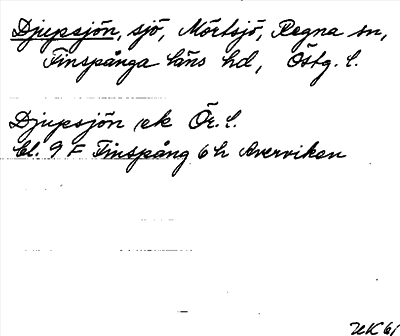 Djupsjön, sjö, Mörtsjö, Regna sn,
Finspånga läns hd, Östg. l.
Djupsjön ek Ör. l.
bl. 9 F Finspång 6 h Averviken
UK 61